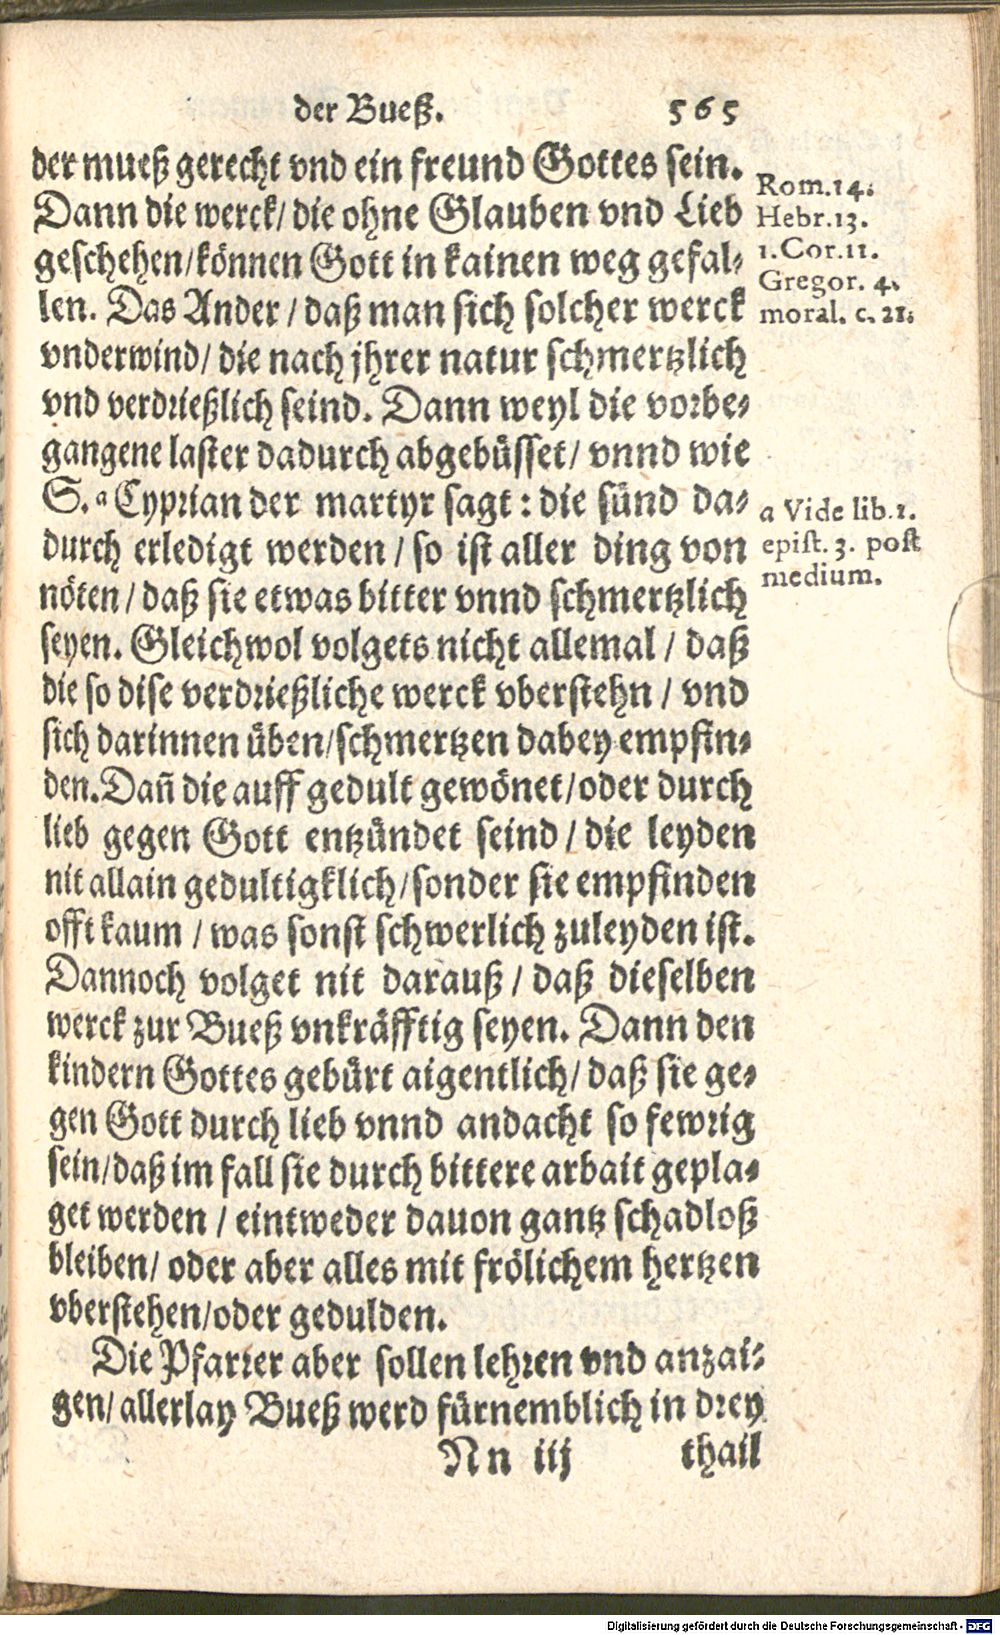 der Bueß. 565
der mueß gerecht vnd ein freund Gottes sein.
Dann die werck/ die ohne Glauben vnd Lieb
geschehen/können Gott in kainen weg gefal-
len. Das Ander / daß man sich solcher werck
vnderwind/ die nach jhrer natur schmertzlich
vnd verdrießlich seind. Dann weyl die vorbe-
gangene laster dadurch abgebüsset/ vnnd wie
S. a Cyprian der martyr sagt : die sünd da-
durch erledigt werden / so ist aller ding von
nöten / daß sie etwas bitter vnnd schmertzlich
seyen. Gleichwol volgets nicht allemal / daß
die so dise verdrießliche werck vberstehn / vnd
sich darinnen üben/schmertzen dabey empfin-
den. Dañ die auff gedult gewönet/oder durch
lieb gegen Gott entzündet seind / die leyden
nit allain gedultigklich/sonder sie empfinden
offt kaum / was sonst schwerlich zuleyden ist.
Dannoch volget nit darauß / daß dieselben
werck zur Bueß vnkräfftig seyen. Dann den
kindern Gottes gebürt aigentlich/ daß sie ge-
gen Gott durch lieb vnnd andacht so fewrig
sein/daß im fall sie durch bittere arbait gepla-
get werden / eintweder dauon gantz schadloß
bleiben/ oder aber alles mit frölichem hertzen
vberstehen/oder gedulden.
Die Pfarrer aber sollen lehren vnd anzai-
gen/ allerlay Bueß werd fürnemblich in drey
Nn iij thail
Rom. 14.
Hebr. 13.
1. Cor. 11.
Gregor. 4.
moral. c. 21.
a Vide lib. 1.
epist. 3. post
medium.
Digitalisierung gefördert durch die Deutsche Forschungsgemeinschaft - DFG